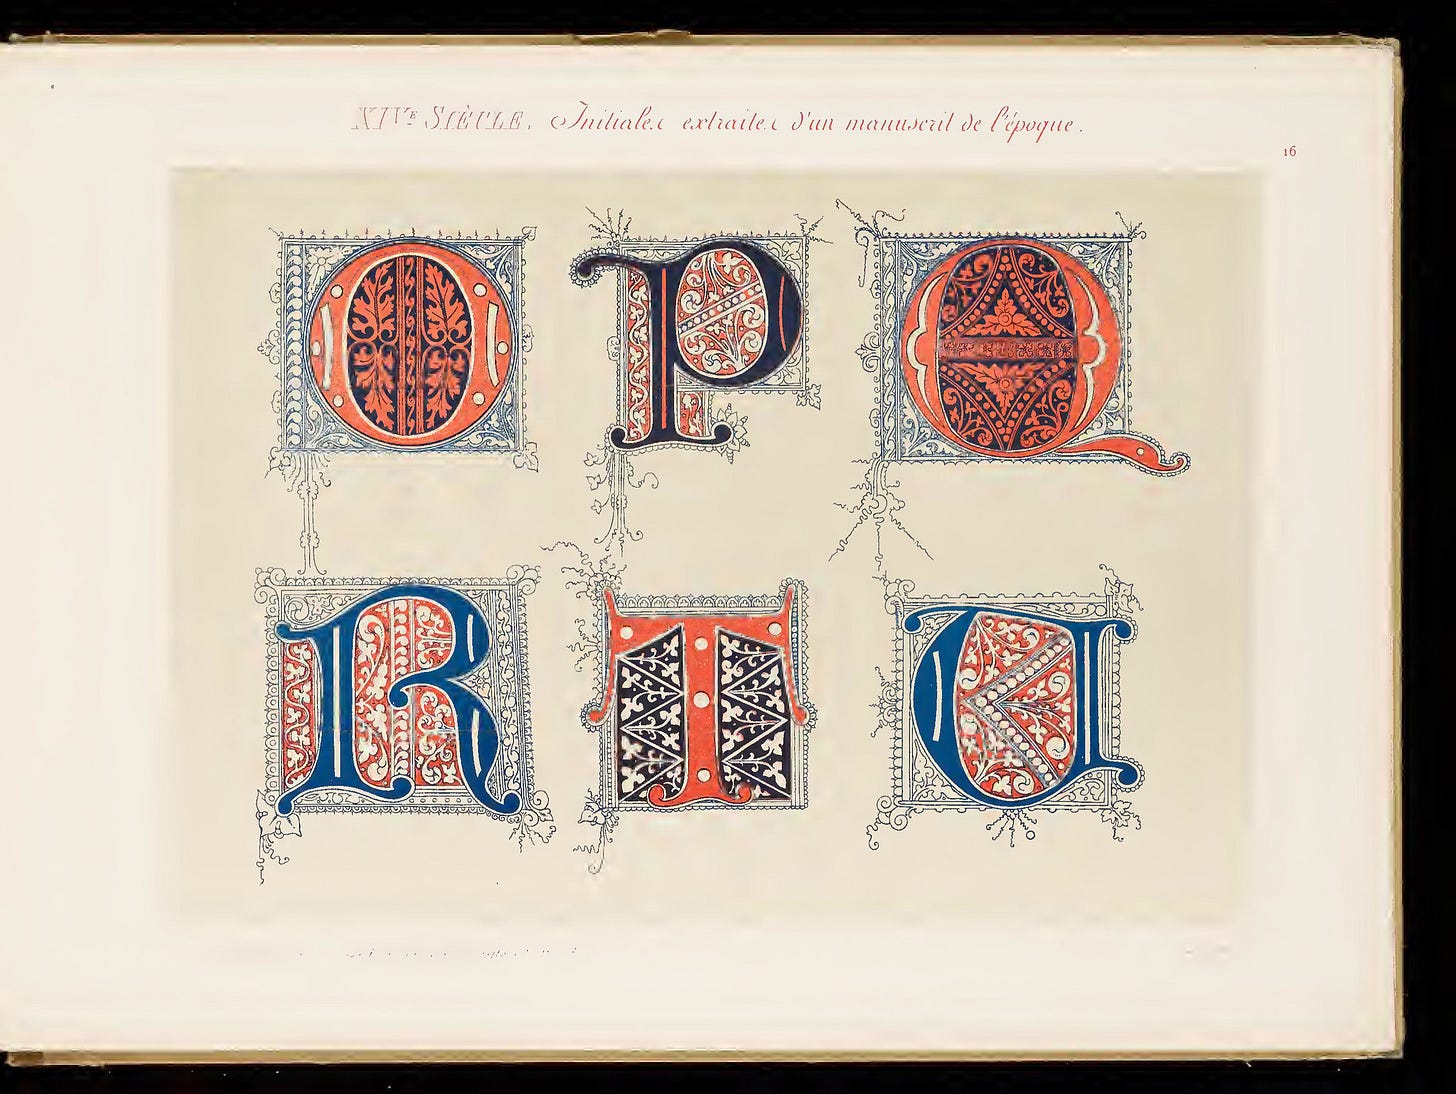 XIVE SIÈCLE. Initiales extraites d'un manuscrit de l'époque.
16
O P Q
R T U